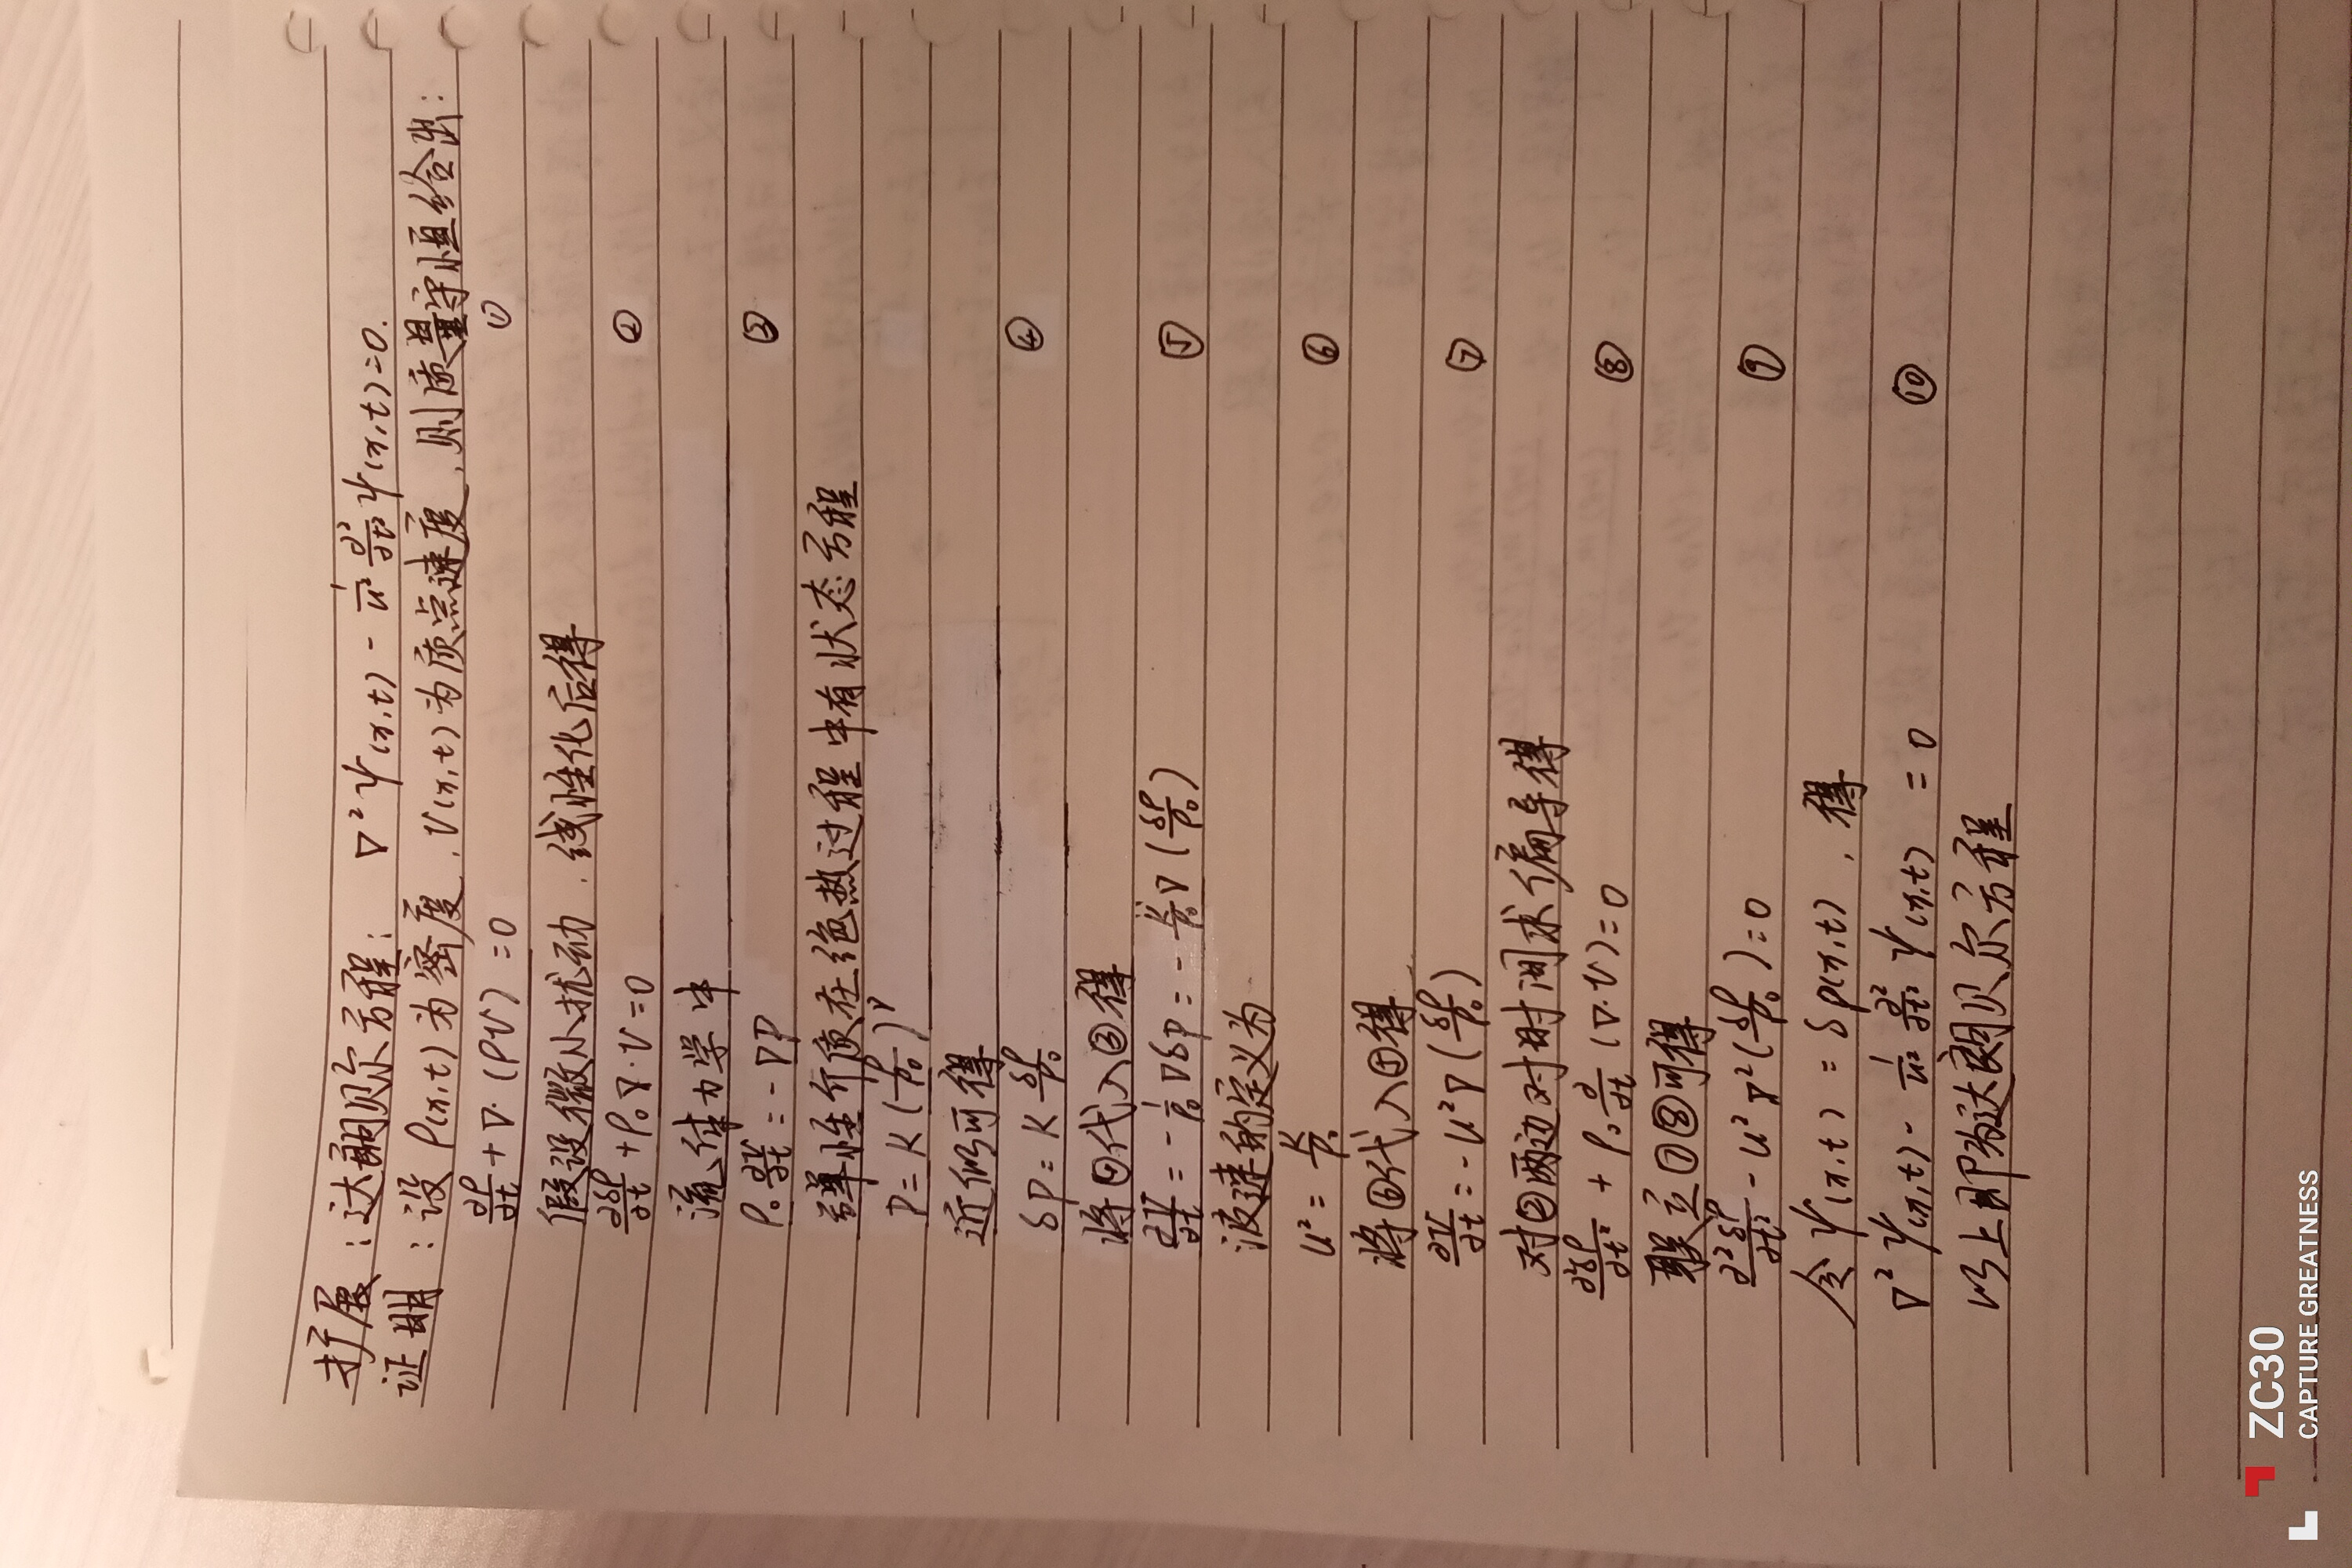 扩展：达朗贝尔方程： ∇²ψ(x,t) - 1/u² ∂²/∂t² ψ(x,t)=0.
证明：设 ρ(x,t) 为密度，V(x,t) 为质点速度，则质量守恒给出：
∂ρ/∂t + ∇·(ρV) =0 ①
假设微小扰动，线性化后得
∂δρ/∂t + ρ₀∇·V=0 ②
流体力学中
ρ₀ ∂V/∂t = -∇P ③
弹性介质在绝热过程中有状态方程
P= K(ρ/ρ₀)^γ
近似可得
δP= K δρ/ρ₀ ④
将④代入③得
∂V/∂t = - 1/ρ₀ ∇δP = - K/ρ₀ ∇(δρ/ρ₀) ⑤
波速的定义为
u² = K/ρ₀ ⑥
将⑥代入⑤得
∂V/∂t = -u²∇(δρ/ρ₀) ⑦
对②两边对时间求偏导得
∂²δρ/∂t² + ρ₀ ∂/∂t (∇·V)=0 ⑧
联立⑦⑧可得
∂²δρ/∂t² - u²∇²(δρ/ρ₀)=0 ⑨
令 ψ(x,t) = δρ(x,t)，得
∇²ψ(x,t) - 1/u² ∂²/∂t² ψ(x,t) = 0 ⑩
以上即为达朗贝尔方程
ZC30
CAPTURE GREATNESS